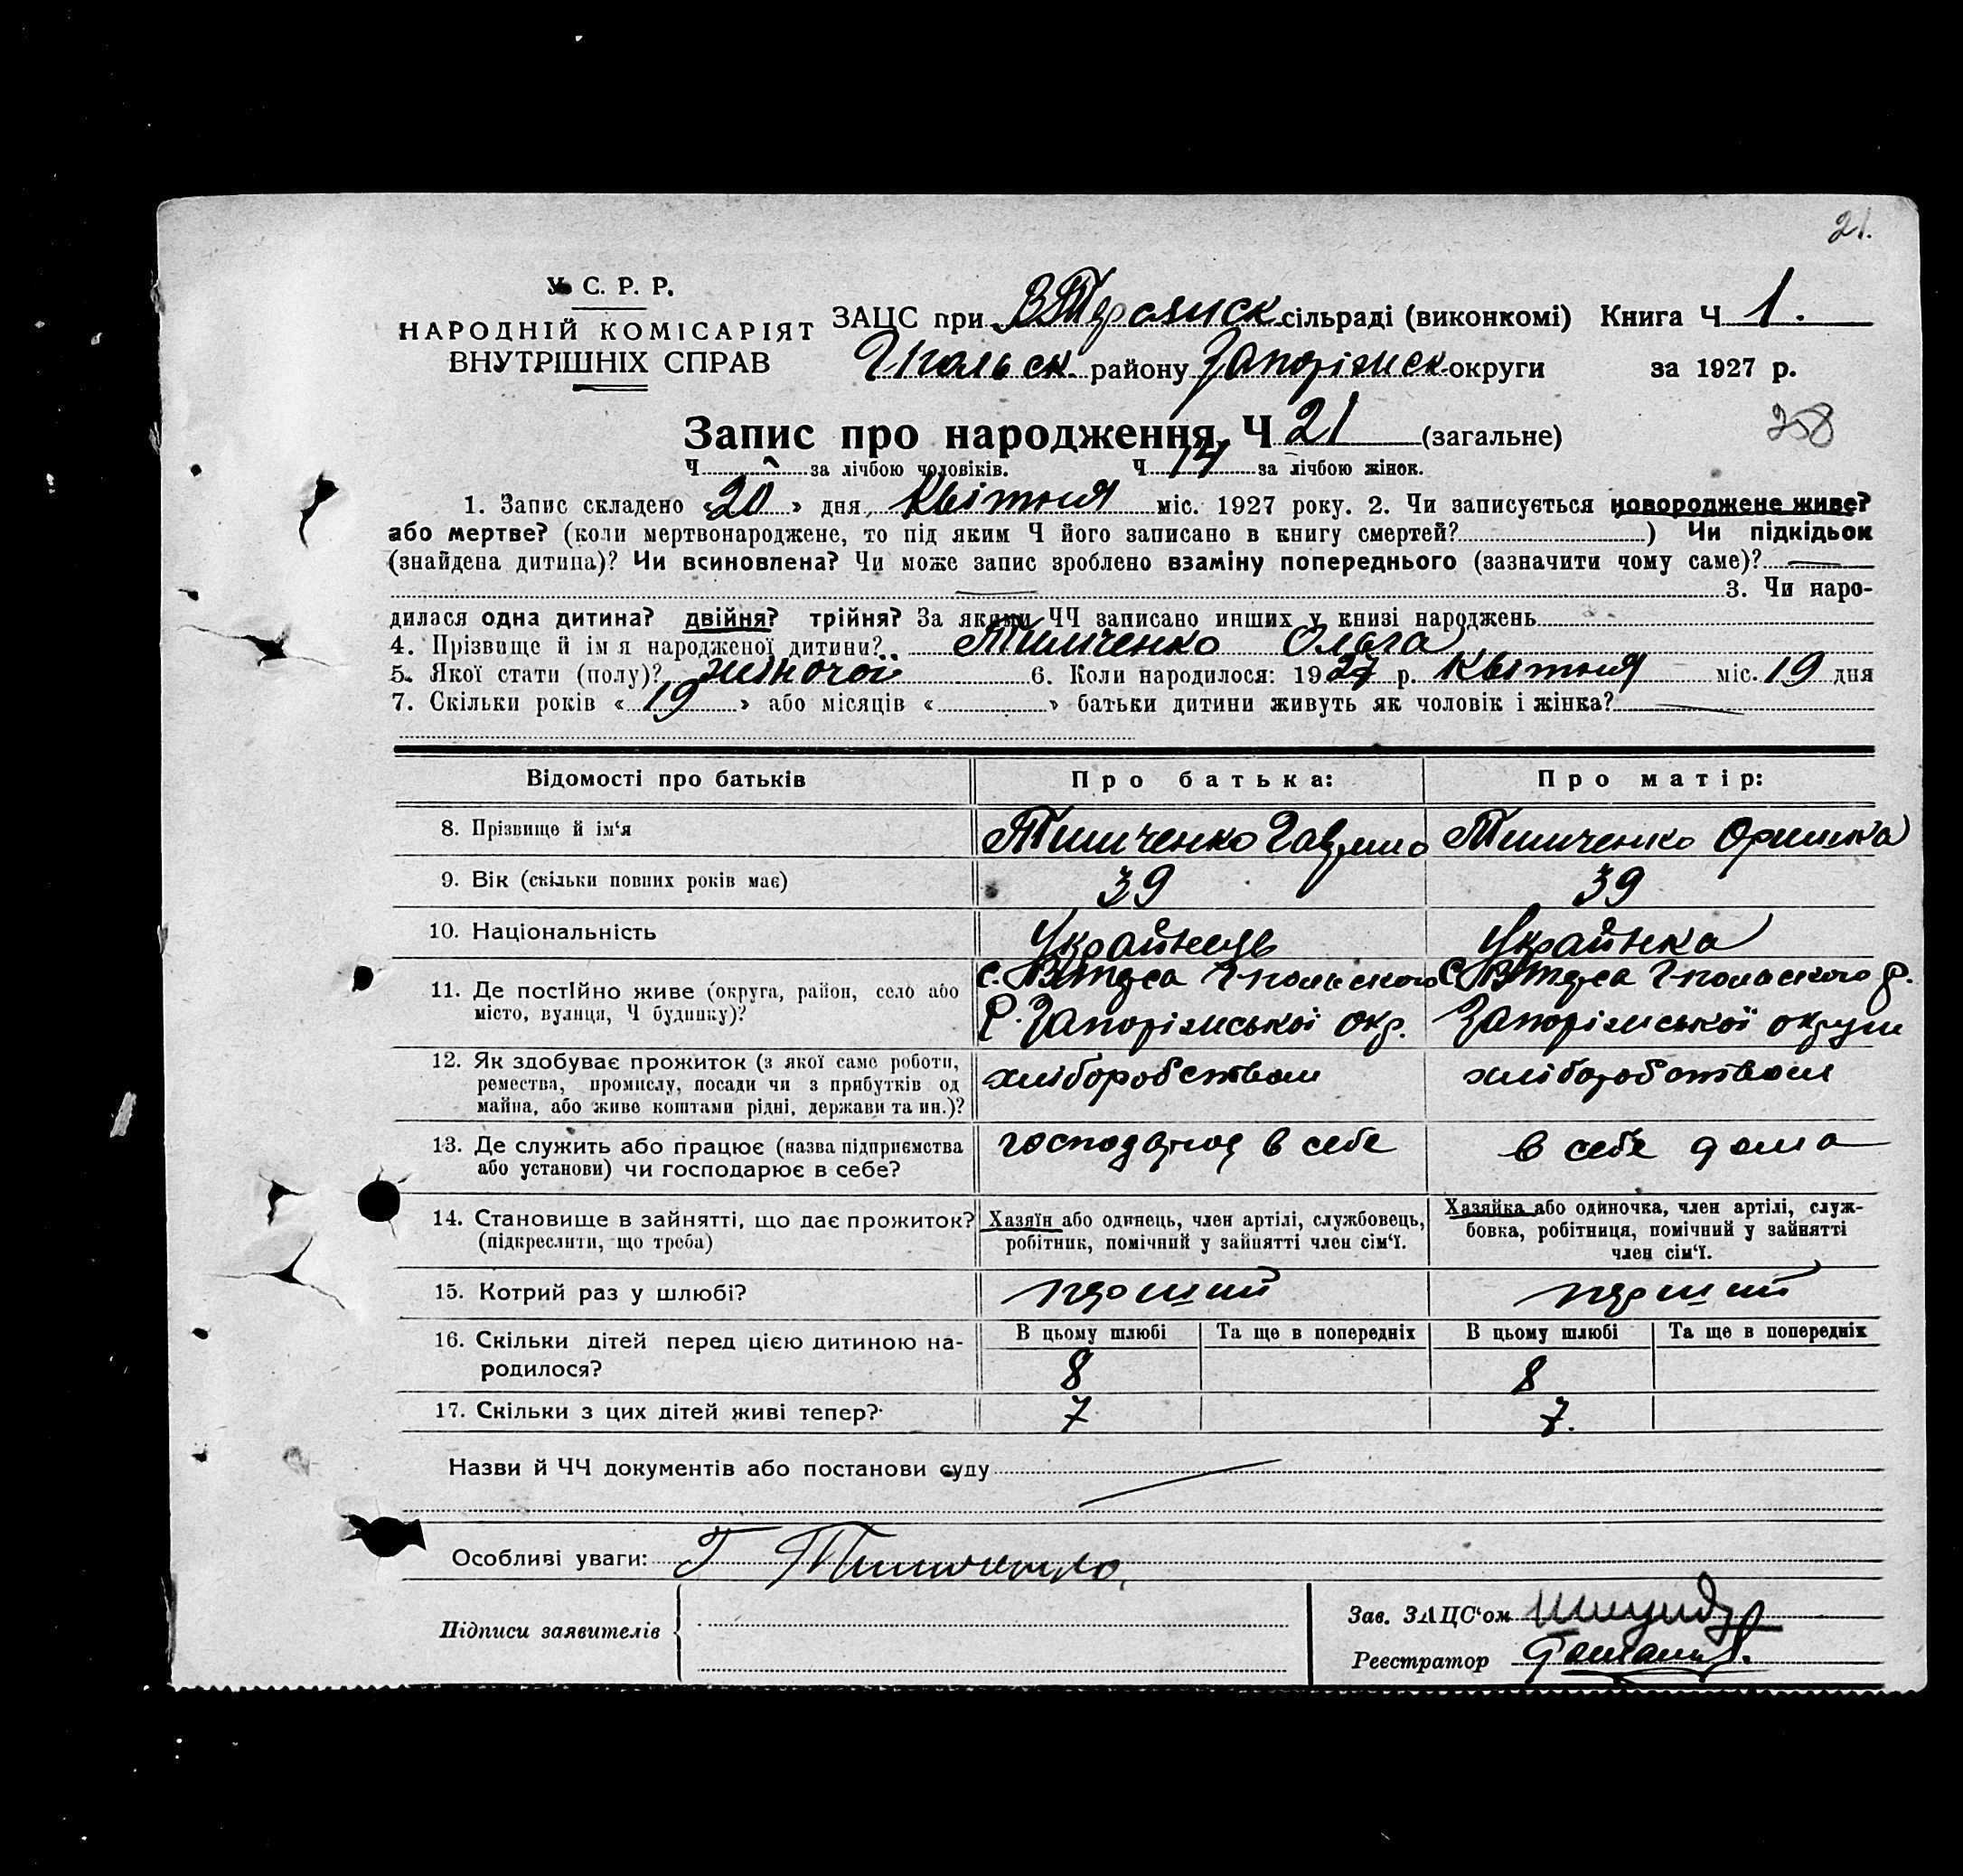 21.
У. С. Р. Р.
НАРОДНІЙ КОМІСАРІЯТ
ВНУТРІШНІХ СПРАВ
ЗАЦС при сільраді (виконкомі) Книга Ч 1.
району Запоріжськ округи за 1927 р.
258
Запис про народження, Ч 21 (загальне)
Ч за лічбою чоловіків. Ч 14 за лічбою жінок.
1. Запис складено «20» дня, Квітня міс. 1927 року. 2. Чи записується новороджене живе?
або мертве? (коли мертвонароджене, то під яким Ч його записано в книгу смертей? ) Чи підкідьок
(знайдена дитина)? Чи всиновлена? Чи може запис зроблено взаміну попереднього (зазначити чому саме)?
3. Чи наро-
дилася одна дитина? двійня? трійня? За якими ЧЧ записано инших у книзі народжень
4. Прізвище й ім я народженої дитини? Тимченко Ольга
5. Якої стати (полу)? жіночої 6. Коли народилося: 1927 р. Квітня міс. 19 дня
7. Скільки років «19» або місяців « » батьки дитини живуть як чоловік і жінка?
Відомості про батьків Про батька: Про матір:
8. Прізвище й ім‘я Тимченко Гаврило Тимченко Оришка
9. Вік (скільки повних років має) 39 39
10. Національність Українець Українка
11. Де постІйно живе (округа, район, село або
місто, вулиця, Ч будинку)?
с.
Р. Запоріжської окр.
с. р.
Запоріжської округи
12. Як здобуває прожиток (з якої саме роботи,
ремества, промислу, посади чи з прибутків од
майна, або живе коштами рідні, держави та ин.)?
хліборобством хліборобством
13. Де служить або працює (назва підприємства
або установи) чи господарює в себе?
господарює в себе в себе дома
14. Становище в зайнятті, що дає прожиток?
(підкреслити, що треба)
Хазяїн або одинець, член артілі, службовець,
робітник, помічний у зайнятті член сім‘ї.
Хазяйка або одиночка, член артілі, служ-
бовка, робітниця, помічний у зайнятті
член сім‘ї.
15. Котрий раз у шлюбі? перший перший
16. Скільки дітей перед цією дитиною на-
родилося?
В цьому шлюбі Та ще в попередніх В цьому шлюбі Та ще в попередніх
8 8
17. Скільки з цих дітей живі тепер? 7 7.
Назви й ЧЧ документів або постанови суду
Особливі уваги: Г Тимченко.
Підписи заявителів
Зав. ЗАЦС‘ом
Реєстратор